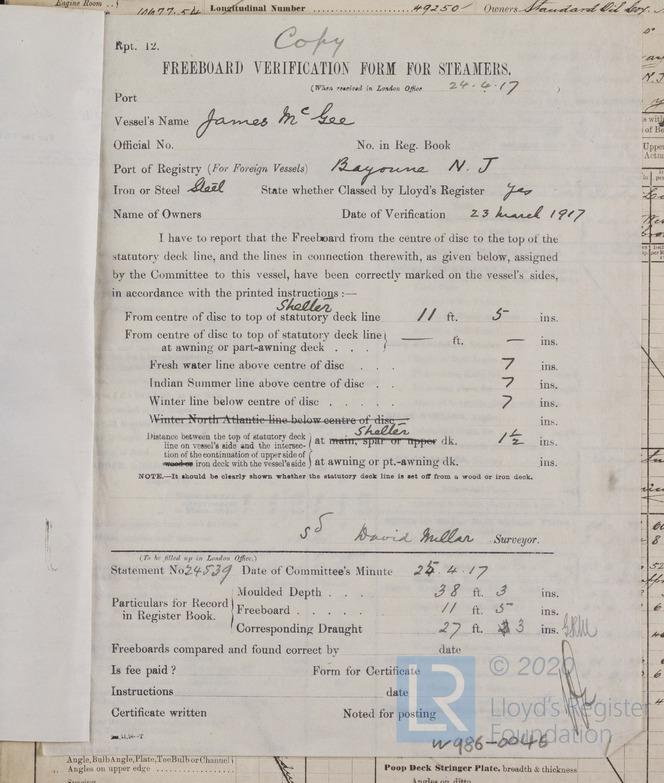 Engine Room
10677.54 Longitudinal Number 49250 Owners Standard Oil Coy.
Copy
Rpt. 12.
FREEBOARD VERIFICATION FORM FOR STEAMERS.
(When received in London Office 24.4.17 )
Port
Vessel's Name James McGee
Official No. No. in Reg. Book
Port of Registry (For Foreign Vessels) Bayonne N. J
Iron or Steel Steel State whether Classed by Lloyd's Register yes
Name of Owners Date of Verification 23 March 1917
I have to report that the Freeboard from the centre of disc to the top of the
statutory deck line, and the lines in connection therewith, as given below, assigned
by the Committee to this vessel, have been correctly marked on the vessel's sides,
in accordance with the printed instructions :—
Shelter
From centre of disc to top of statutory deck line 11 ft. 5 ins.
From centre of disc to top of statutory deck line
at awning or part-awning deck . . . — ft. — ins.
Fresh water line above centre of disc . . . 7 ins.
Indian Summer line above centre of disc . . 7 ins.
Winter line below centre of disc . . . 7 ins.
Winter North Atlantic line below centre of disc ins.
Distance between the top of statutory deck
line on vessel's side and the intersec-
tion of the continuation of upper side of
wood or iron deck with the vessel's side
Shelter
at main, spar or upper dk. 1½ ins.
at awning or pt.-awning dk. ins.
NOTE.—It should be clearly shown whether the statutory deck line is set off from a wood or iron deck.
sd David Millar Surveyor.
(To be filled up in London Office.)
Statement No 24539 Date of Committee's Minute 25.4.17
Particulars for Record
in Register Book.
Moulded Depth . . . 38 ft. 3 ins.
Freeboard . . . . . 11 ft. 5 ins.
Corresponding Draught 27 ft. 3 ins.
Freeboards compared and found correct by date
Is fee paid ? Form for Certificate
Instructions date
Certificate written Noted for posting
LR
© 2020
Lloyd's Register
Foundation
W986-0046
Angle, Bulb Angle, Plate, Tee Bulb or Channel
Angles on upper edge
Poop Deck Stringer Plate, breadth & thickness
Angles on ditto